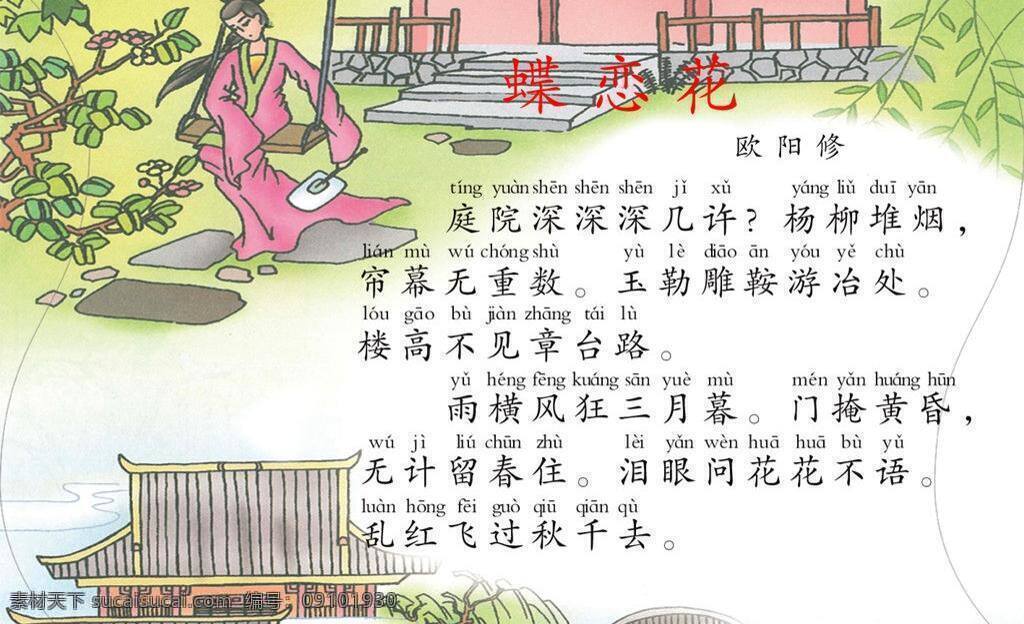 蝶恋花
欧阳修
tíng yuàn shēn shēn shēn jǐ xǔ yáng liǔ duī yān
庭院深深深几许？杨柳堆烟，
lián mù wú chóng shù yù lè diāo ān yóu yě chù
帘幕无重数。玉勒雕鞍游冶处。
lóu gāo bù jiàn zhāng tái lù
楼高不见章台路。
yǔ héng fēng kuáng sān yuè mù mén yǎn huáng hūn
雨横风狂三月暮。门掩黄昏，
wú jì liú chūn zhù lèi yǎn wèn huā huā bù yǔ
无计留春住。泪眼问花花不语。
luàn hōng fēi guò qiū qiān qù
乱红飞过秋千去。
素材天下 sucaisucai.com 编号：09101930